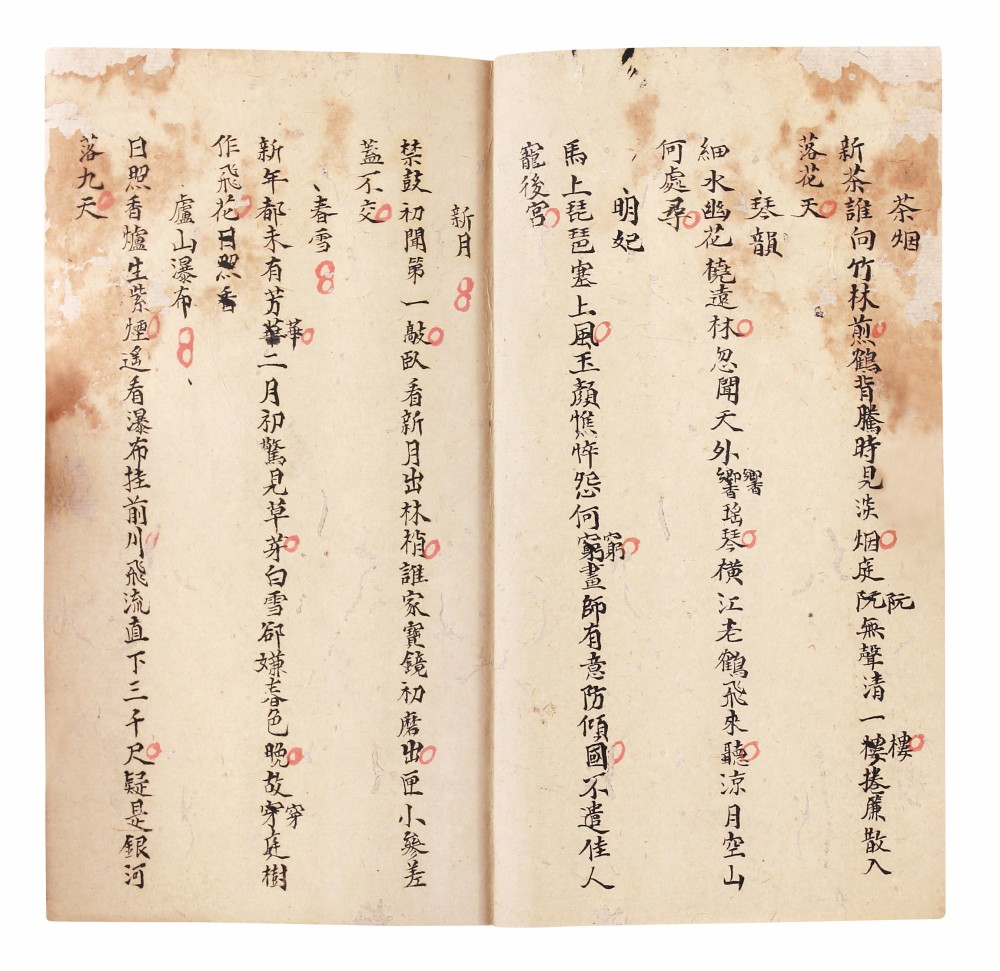 茶烟
新茶誰向竹林煎鶴背騰時見淡烟庭阮無聲清一樓捲簾散入
落花天
琴韻
細水幽花橈遠林忽聞天外響瑤琴橫江老鶴飛來聽涼月空山
何處尋
明妃
馬上琵琶塞上風玉顏憔悴怨何窮畫師有意防傾國不遣佳人
寵後宮
新月
禁鼓初聞第一敲臥看新月出林梢誰家寶鏡初磨出匣小參差
蓋不交
春雪
新年都未有芳華二月初驚見草芽白雪郤嫌春色晚故穿庭樹
作飛花日照香
廬山瀑布
日照香爐生紫煙遙看瀑布挂前川飛流直下三千尺疑是銀河
落九天